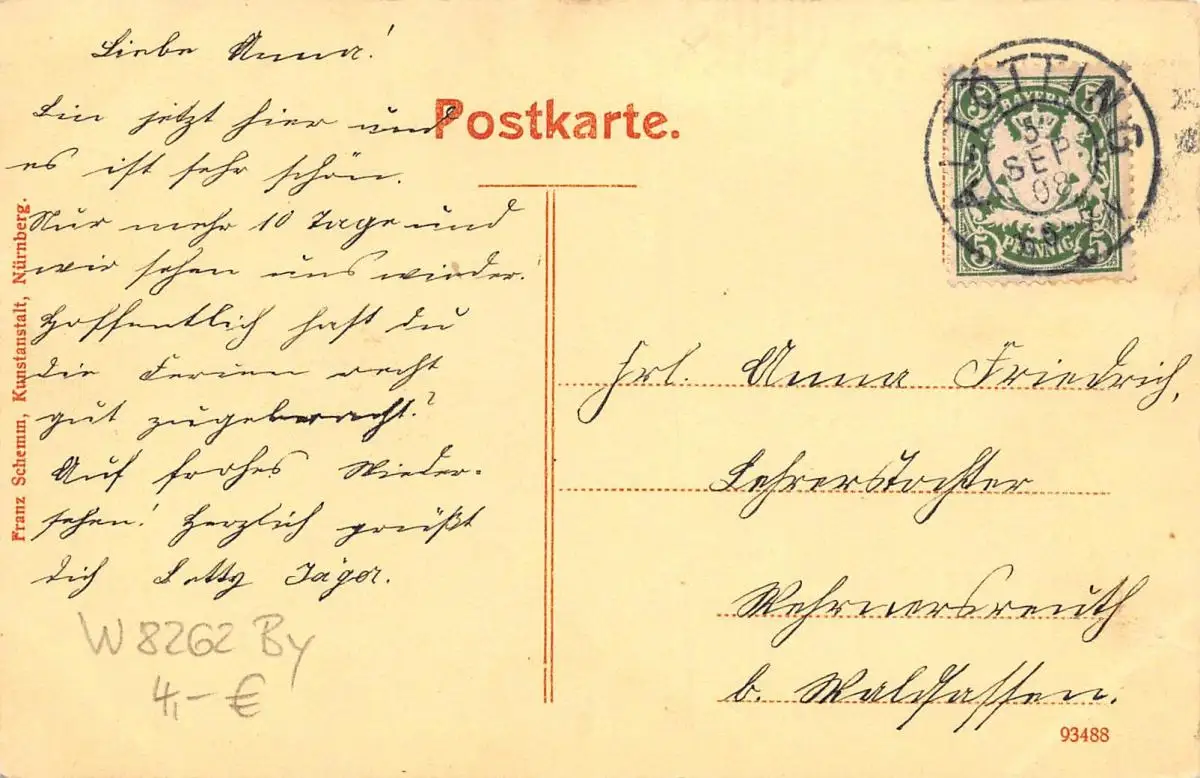 Liebe Anna!
Bin jetzt hier und
es ist sehr schön.
Nur mehr 10 Tage und
wir sehen uns wieder.
Hoffentlich hast du
die Ferien recht
gut zugebracht?
Auf frohes Wieder-
sehen! Herzlich grüßt
dich Betty Jäger.
W 8262 By
4,- €
Franz Schemm, Kunstanstalt, Nürnberg.
Postkarte.
ALTÖTTING
5
SEP.
08
BAYERN
5 PFENNIG 5
Frl. Anna Friedrich,
Lehrerstochter
Wehrnersreuth
b. Waldsassen.
93488